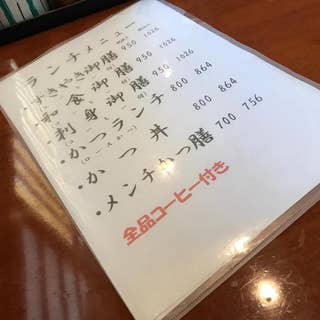 ランチメニュー
・すきやき御膳 950 1026
・和食御膳 950 1026
・刺身御膳 950 1026
・かつランチ 800 864
・かつ丼 800 864
・メンチかつ膳 700 756
全品コーヒー付き